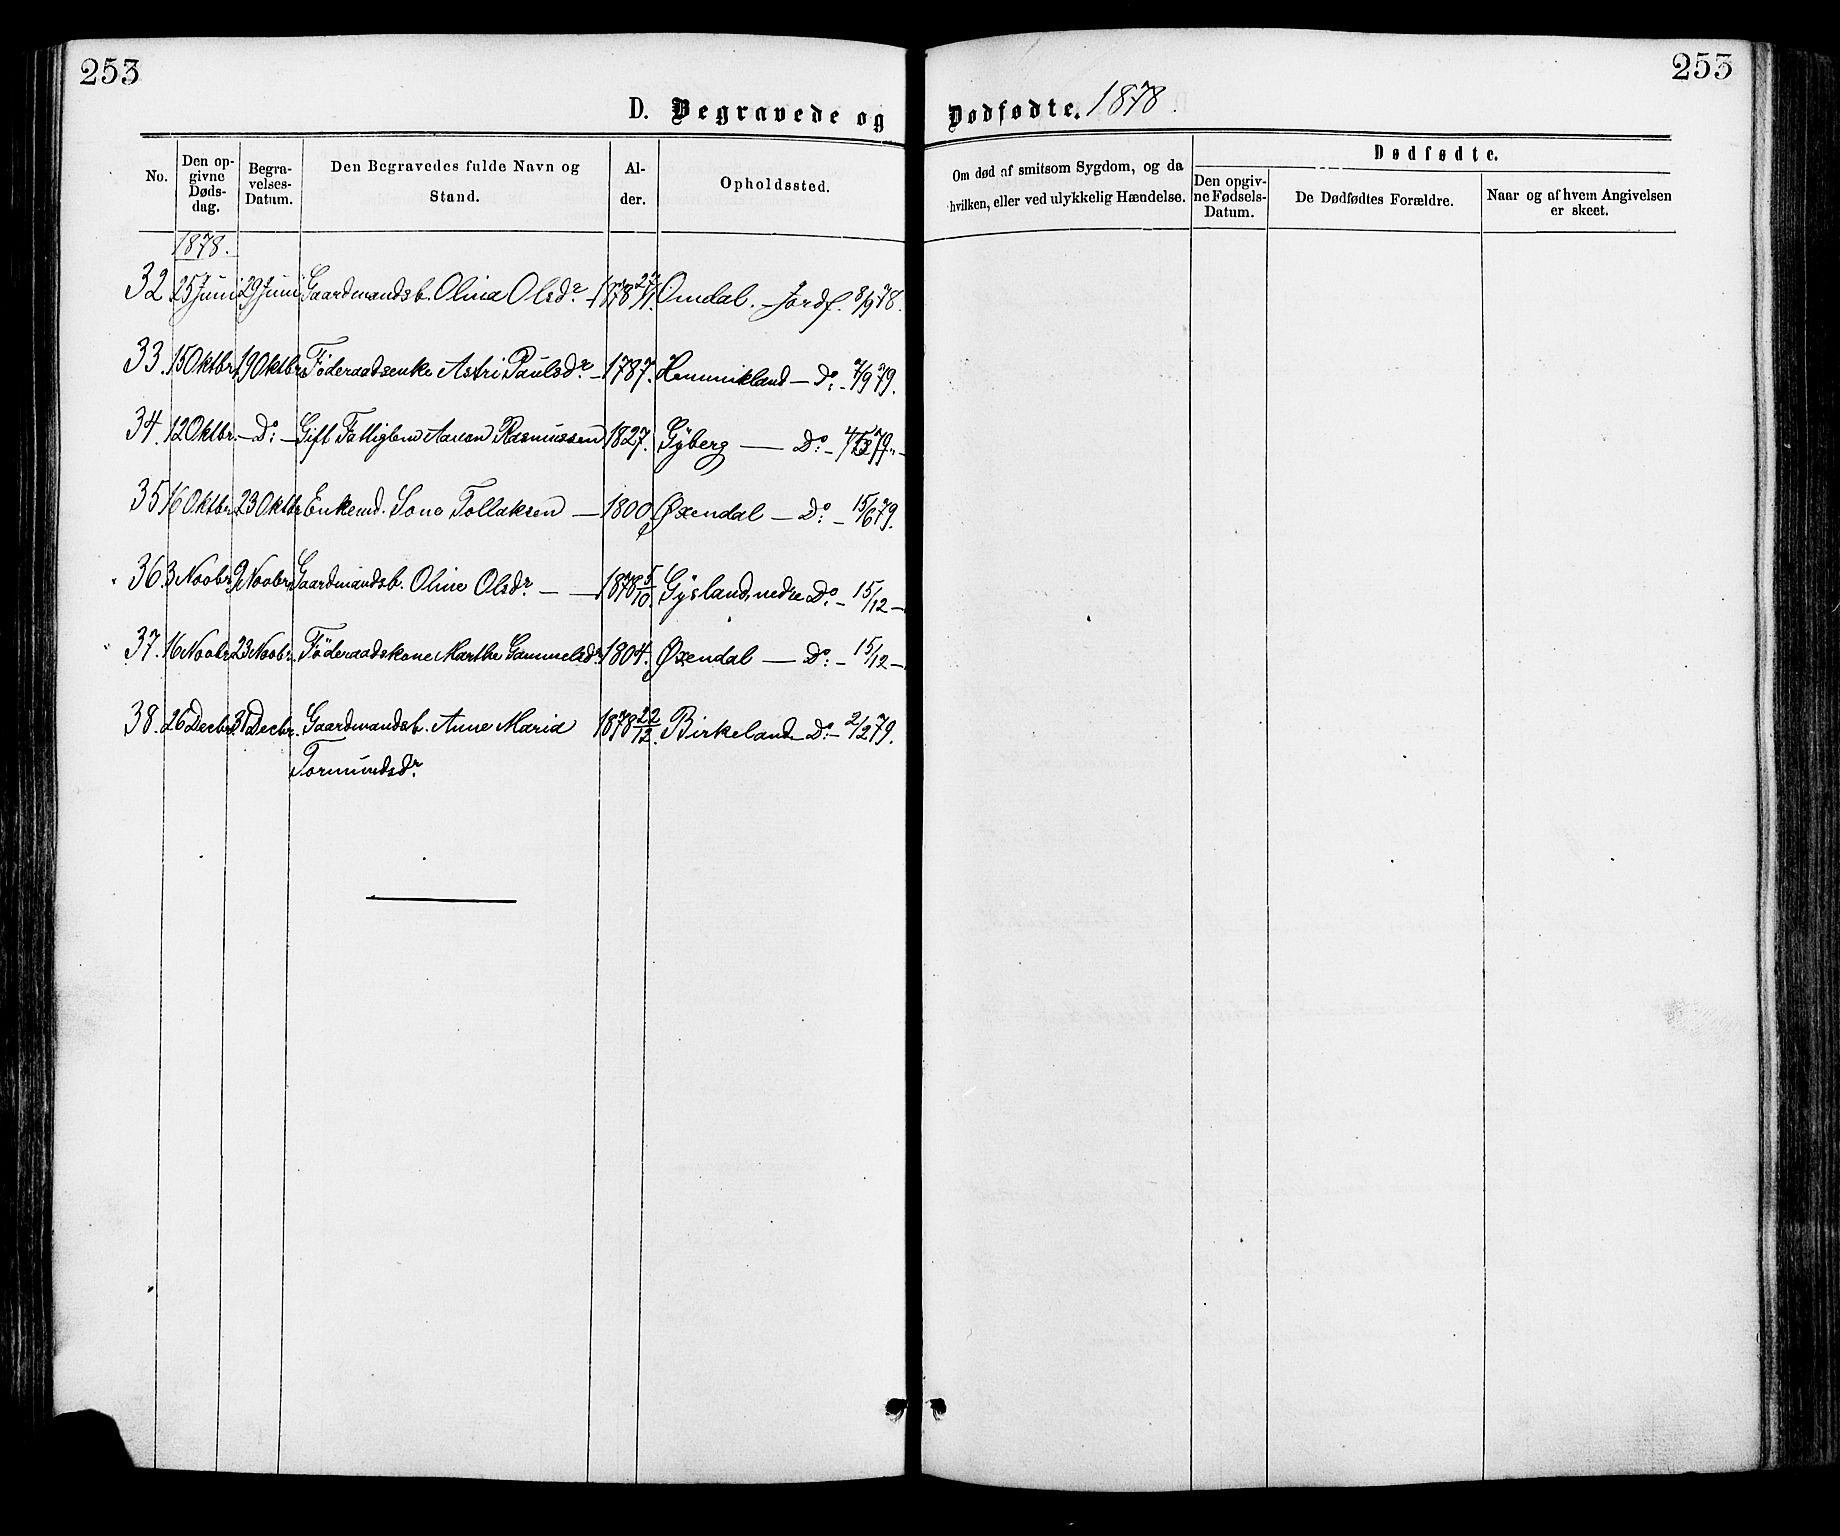 253
253
D. Begravede og Dødfødte. 1878.
No.
Den opgivne Dødsdag.
Begravelses-Datum.
Den Begravedes fulde Navn og Stand.
Alder.
Opholdssted.
Om død af smitsom Sygdom, og da hvilken, eller ved ulykkelig Hændelse.
Dødfødte.
Den opgivne Fødsels-Datum.
De Dødfødtes Forældre.
Naar og af hvem Angivelsen er skeet.
1878.
32 25 Juni 29 Juni Gaardmandsb. Olina Olsdr. 1878 27/1. Omdal. - Jordf. 8/9 78.
33. 15 Oktbr. 19 Oktbr. Føderaadsenke Astri Paulsdr. - 1787. Hemmikland - Do. - 7/9 79.
34. 12 Oktbr. - Do: - Gift Fattiglem Aanen Rasmussen 1827. Gyberg - Do. - 79. -
35 16 Oktbr. 23 Oktbr. Enkemd. Sone Tollaksen - 1800. Øxendal - Do: - 15/6 79.
36. 3 Novbr. 9 Novbr. Gaardmandsb. Oline Olsdr. - - 1878 5/10. Gysland, nedre Do. - 15/12 -
37. 16 Novbr. 23 Novbr. Føderaadskone Marthe Gammelsdr. 1804. Øxendal - Do: - 15/12 -
38. 26 Decbr. 31 Decbr. Gaardmandsb. Anne Maria 1878 22/12. Birkeland - Do - 2/2 79.
Tormundsdr.